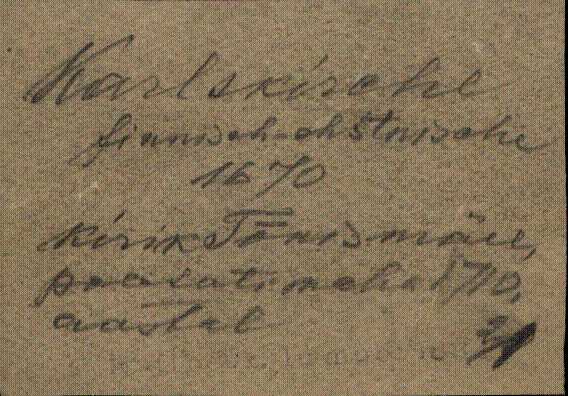 Karlskirche
finnisch-ehstnische
1670
kirik Tõnismäel,
1710.
aastal